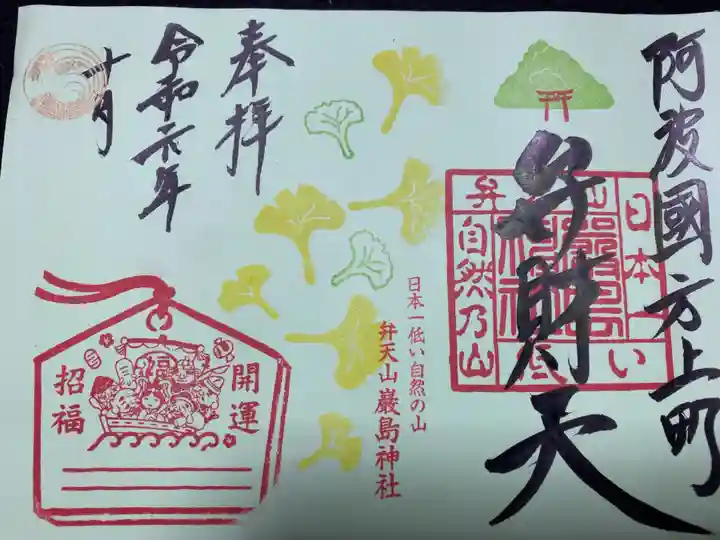 阿波國方上町
弁財天
日本一
低い
自然乃山
弁
山
嚴島
神社
日本一低い自然の山
弁天山巌島神社
奉拝
令和元年
十一月
開運
招福